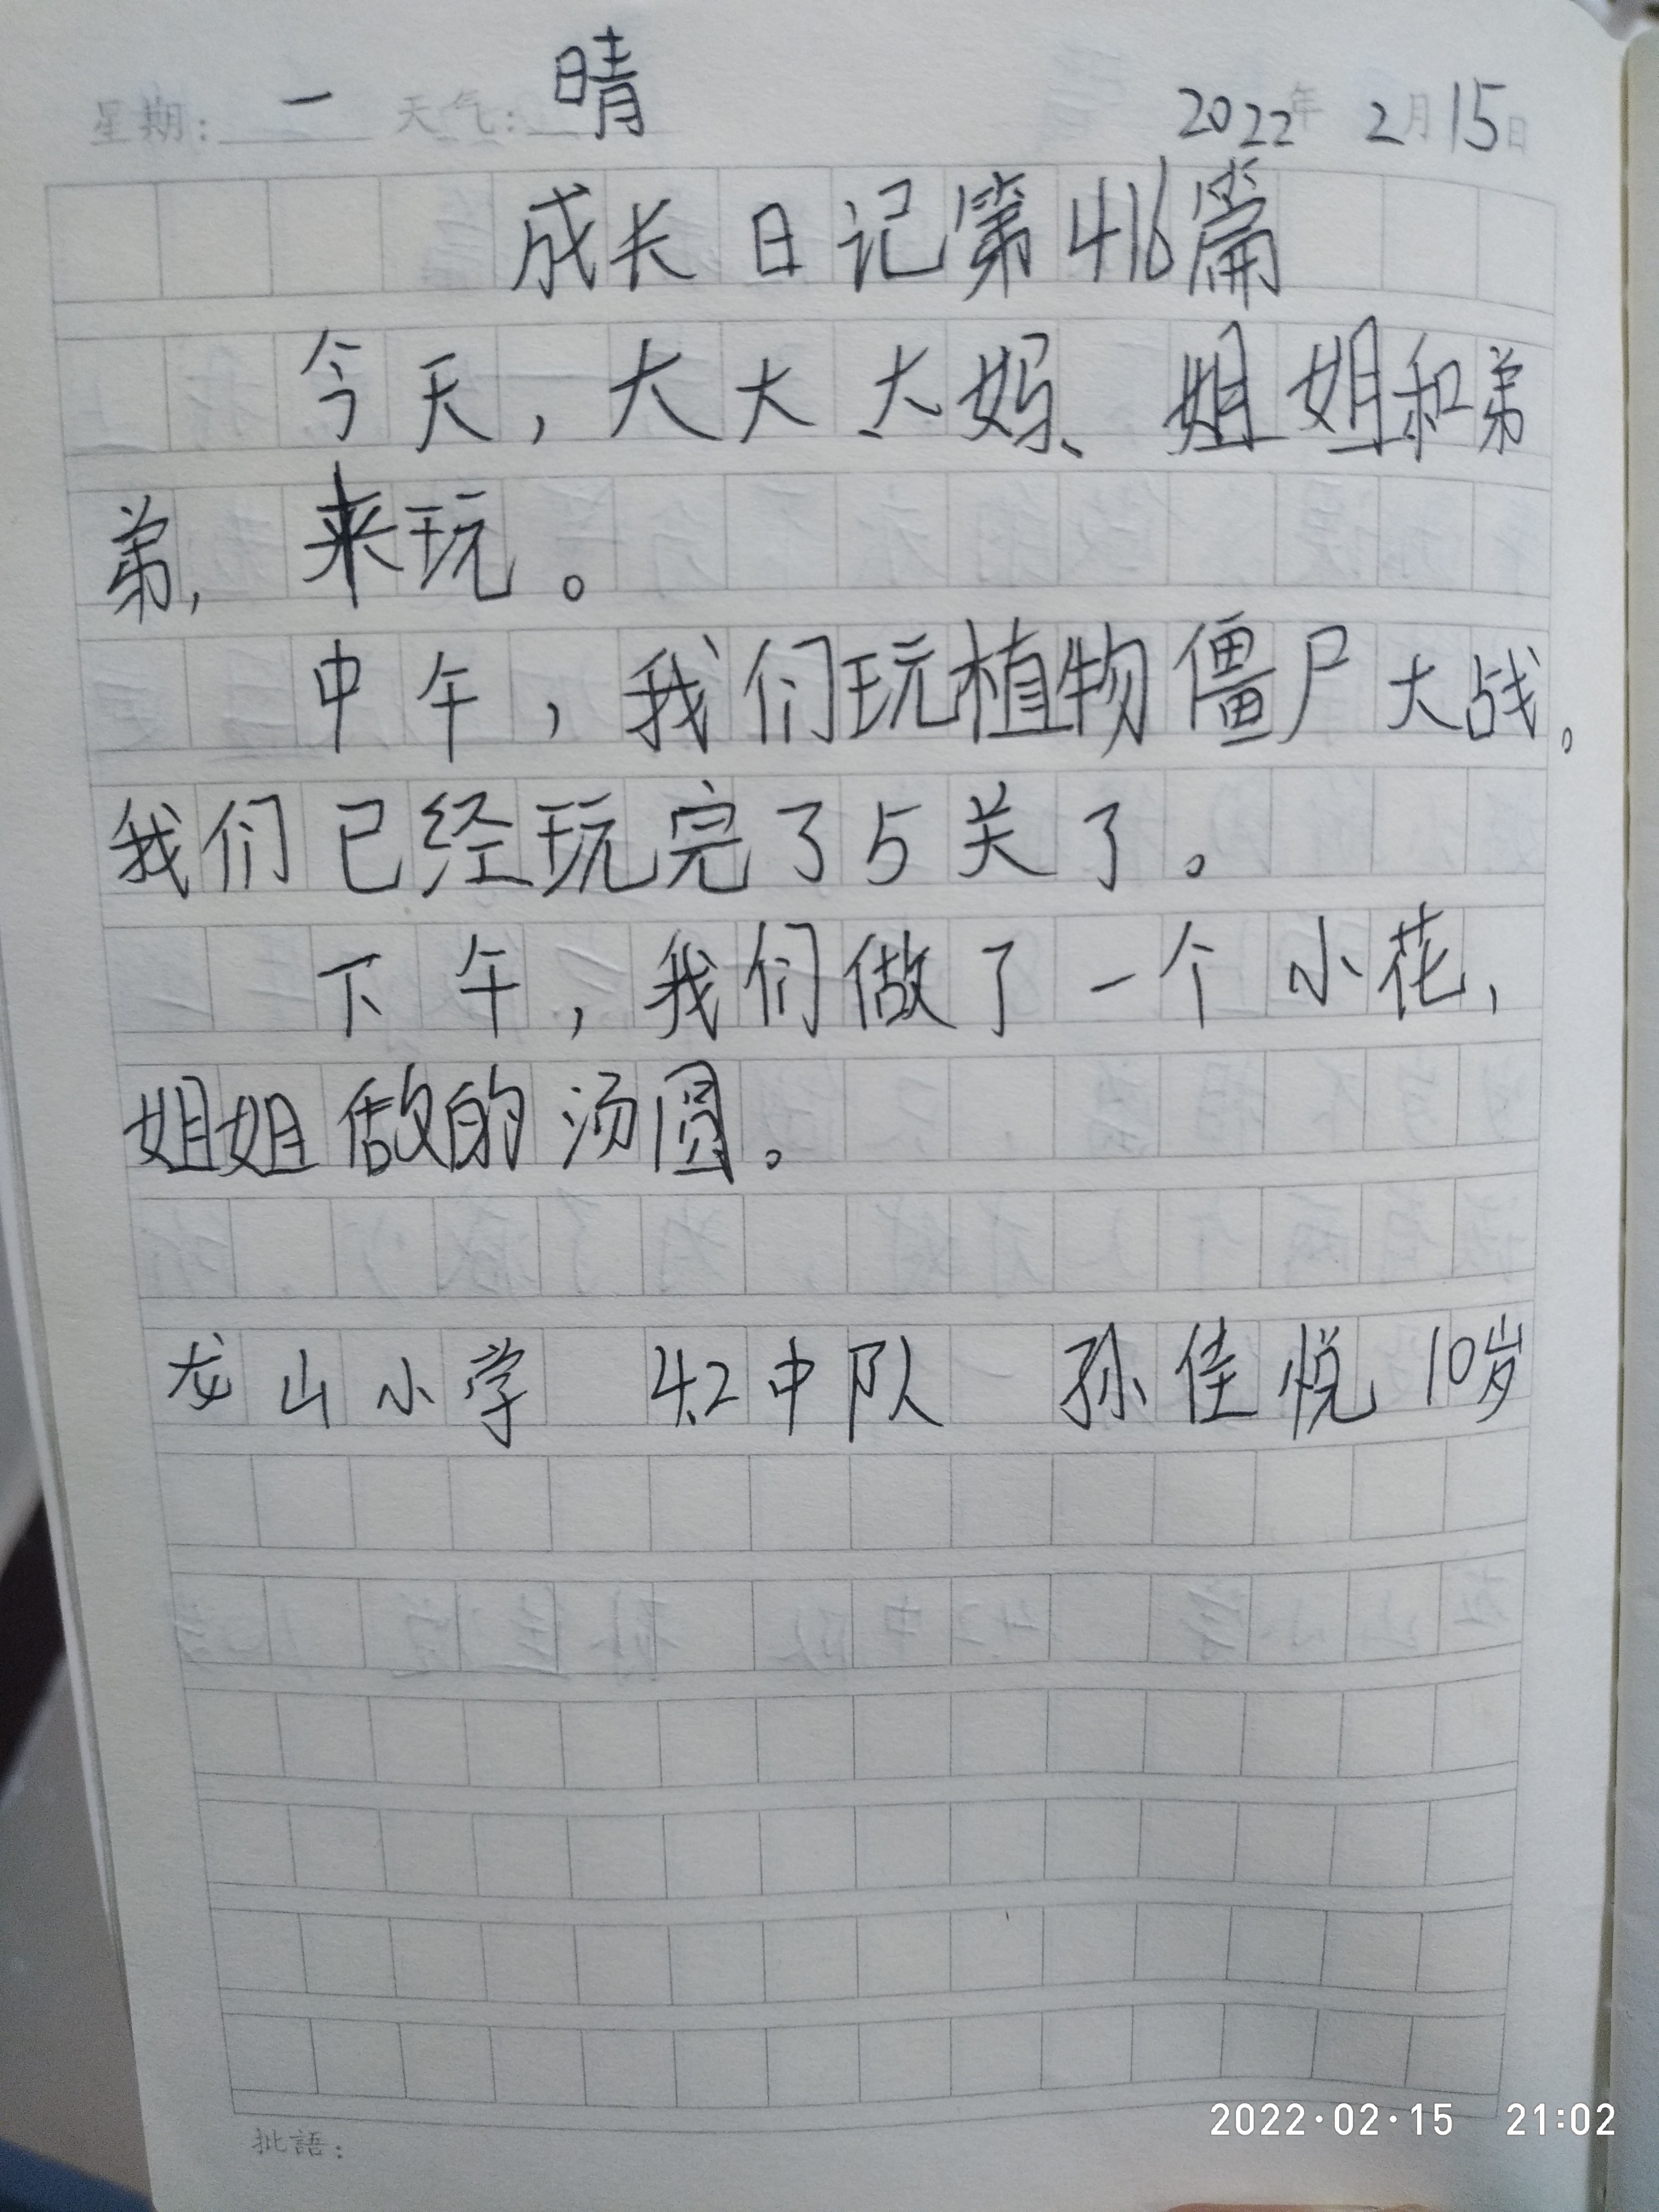 星期：一 天气：晴 2022年2月15日
成长日记第416篇
今天，大大、大妈、姐姐和弟
弟，来玩。
中午，我们玩植物僵尸大战。
我们已经玩完了5关了。
下午，我们做了一个小花，
姐姐做的汤圆。
龙山小学 4.2中队 孙佳悦 10岁
批語：
2022·02·15 21:02